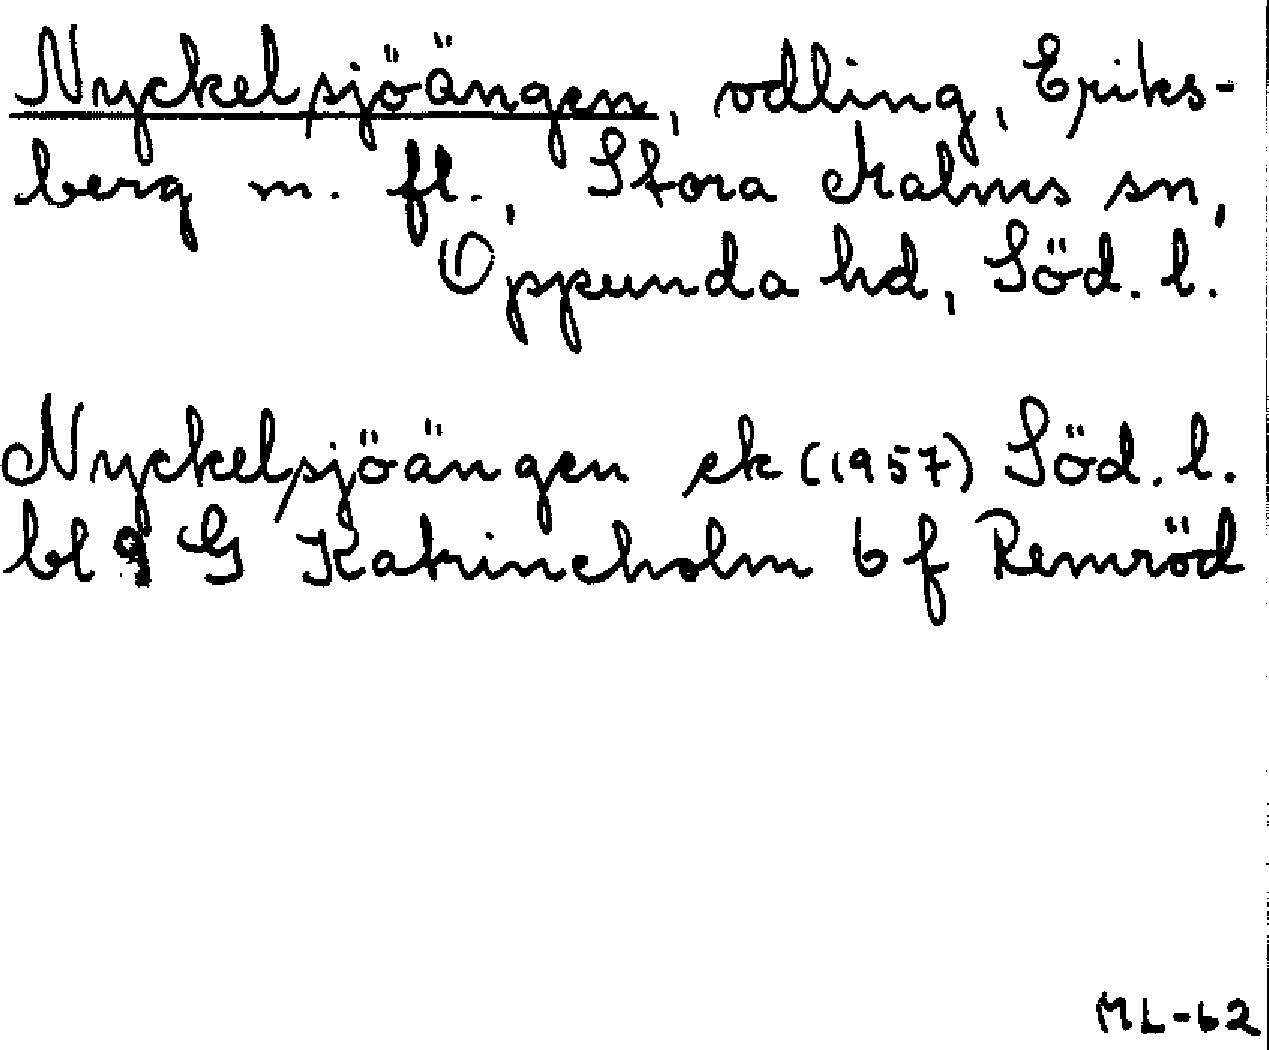 Nyckelsjöängen, odling, Eriks-
berg m. fl., Stora Malms sn,
Oppunda hd, Söd. l.
Nyckelsjöängen ek (1957) Söd. l.
bl 9 G Katrineholm 6 f Remröd
ML-62